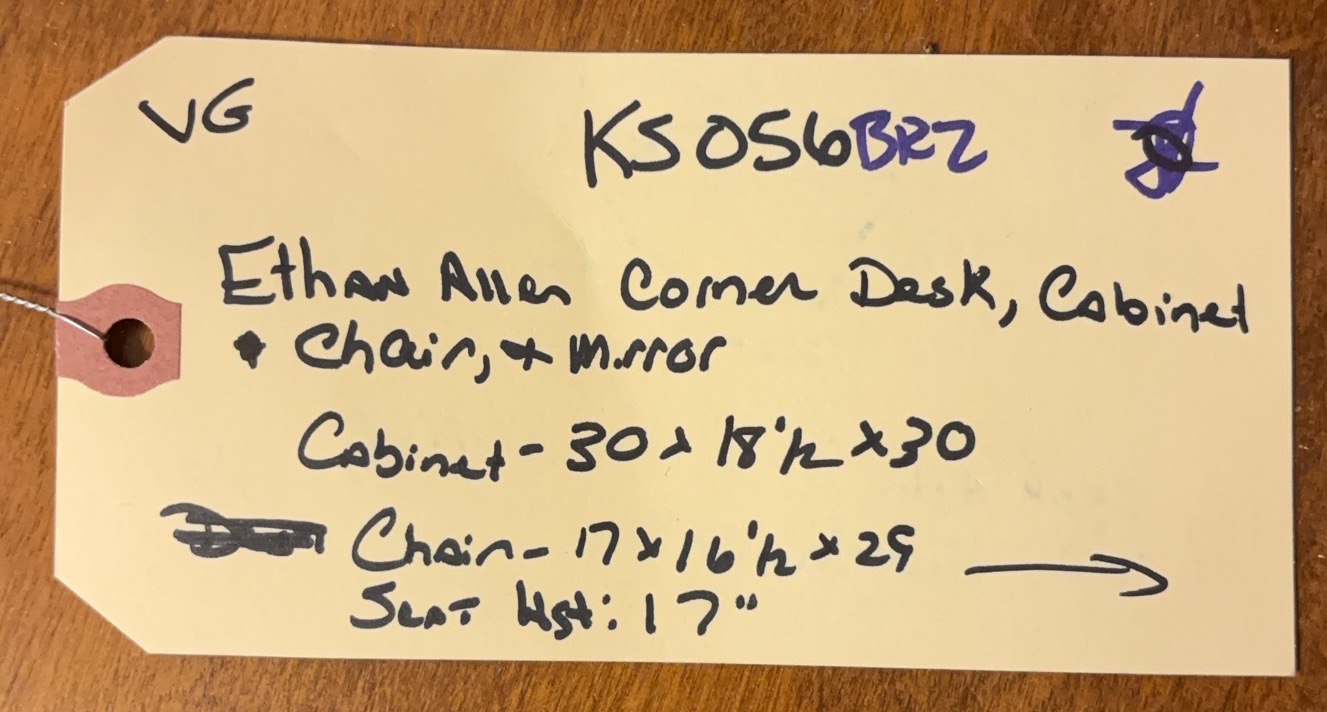 VG
KS056BRZ
Ethan Allen Corner Desk, Cabinet
+ Chair, + Mirror
Cabinet - 30 x 18 1/2 x 30
Chair - 17 x 16 1/2 x 29
Seat Hgt: 17"